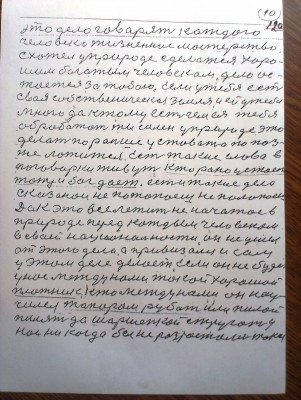 (10)
это дело говарят каждого
человека жизненное мастерство
схател уприроде сделатся хоро-
шим богатым человекам, дело ос-
тается за тобою, если утебя ест
свая собственическая Земля и ей утебя
много да ктому ест чем ея тебя
обработат ты силен уприроде это
делат по ранше устават по поз-
же ложится, ест такие слова в
поговорки живут Кто рано устает
тому и бог дает, ест и такие дело
сказано не потопаеш не полопаеш
Как это все летит не начатое в
природе перед каждым человеком
всвоей нацыональности он не ушел
от этого дела а привязался и сам
у этом деле делает, если он не буде
уное между нами такой хороший
плотник Кто между нами он нау-
чился топаром рубат или пилой
пилят да шаршоткой стругат у
нас ни когда бы не разрослис таки